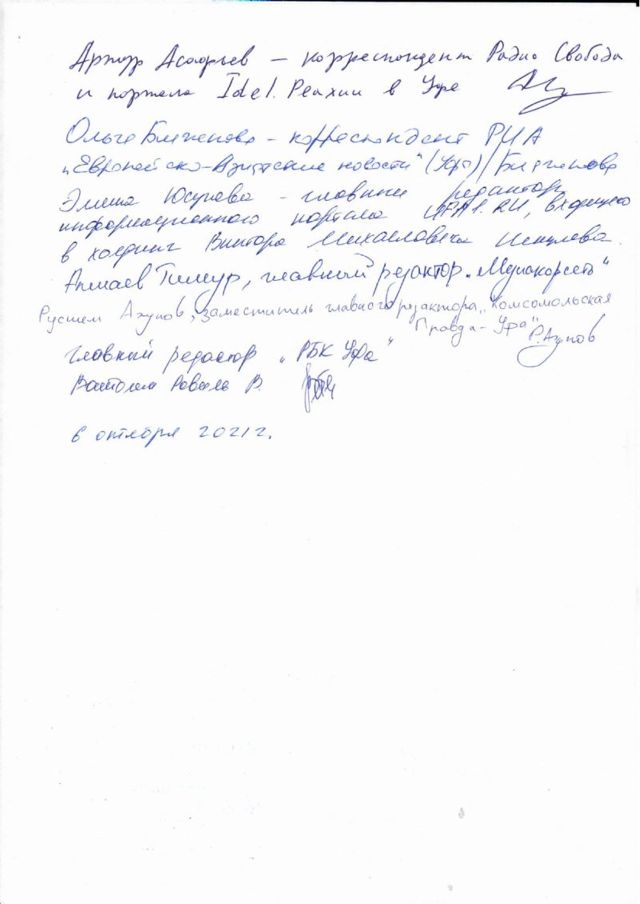 Артур Асафьев — корреспондент Радио Свобода
и портала Idel.Реалии в Уфе
Ольга - корреспондент РИА
„Европейско-Азиатские новости" (Уфа)
Элина Юсупова - главный редактор
информационного портала UFA1.RU, входящего
в холдинг Виктора Михайловича Шкулева.
Алмаев Тимур, главный редактор „Медиакорсеть"
Рустем Ахунов, заместитель главного редактора „Комсомольская
Правда - Уфа" Р.Ахунов
Главный редактор „РБК Уфа"
В.
6 октября 2021 г.